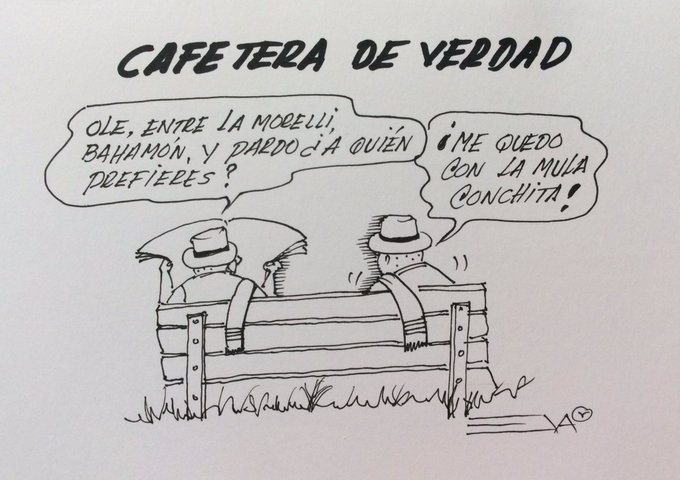 CAFETERA DE VERDAD
OLE, ENTRE LA MORELLI,
BAHAMÓN, Y PARDO ¿A QUIÉN
PREFIERES?
¡ME QUEDO
CON LA MULA
CONCHITA!